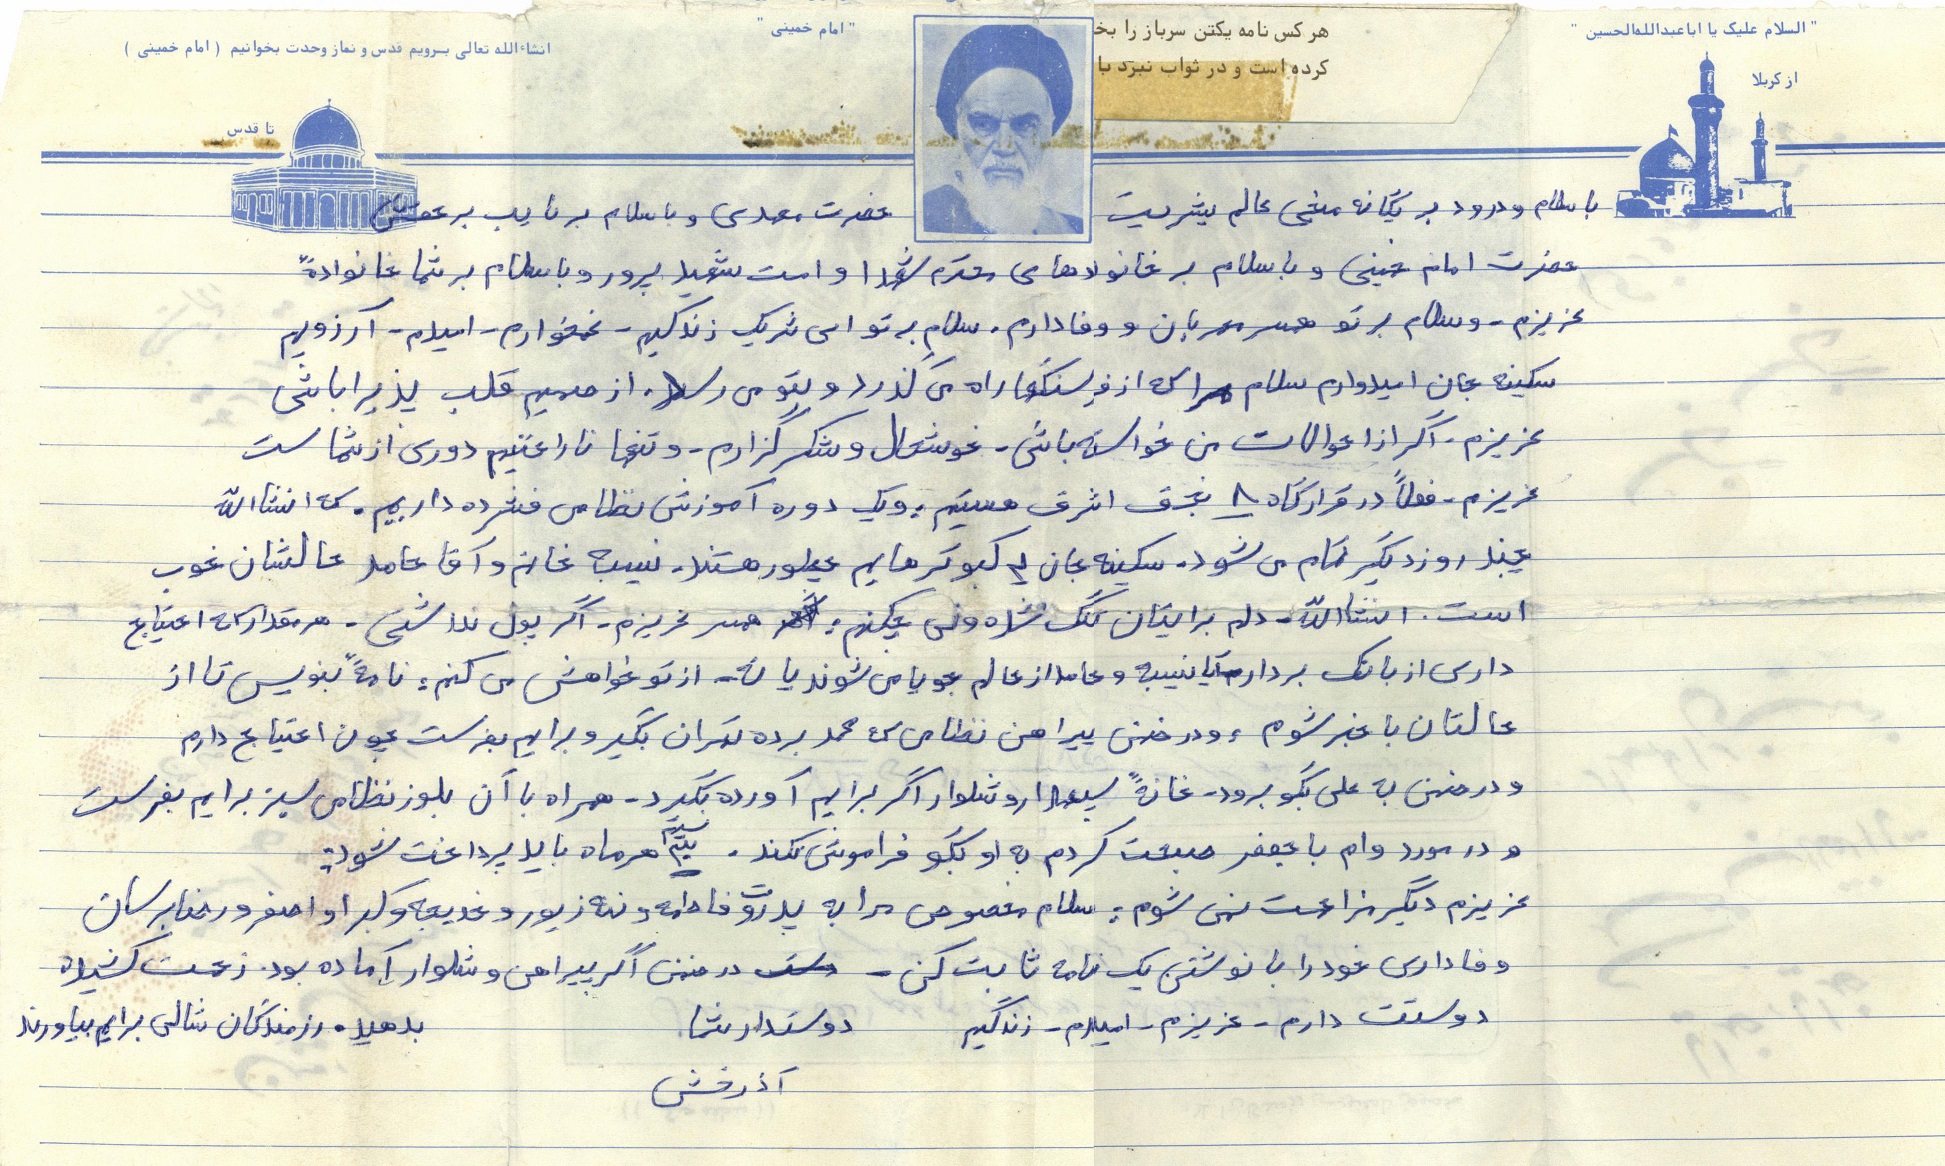 " السلام علیک یا اباعبدالله‌الحسین "
از کربلا
هر کس نامه یکتن سرباز را بخ
کرده است و در ثواب نبرد با
" امام خمینی "
انشاءالله تعالی بـرویم قدس و نماز وحدت بخوانیم ( امام خمینی )
تا قدس
با سلام و درود بر یگانه منجی عالم بشریت حضرت مهدی و با سلام بر نایب بر حقش
حضرت امام خمینی و با سلام بر خانوادهای محترم شهدا و امت شهید پرور و با سلام بر شما خانوادهٔ
عزیزم - و سلام بر تو همسر مهربان و وفادارم . سلام به تو ای شریک زندگیم - غمخوارم - امیدم - آرزویم
سکینه جان امیدوارم سلام مرا که از فرسنگها راه می گذرد و بتو می رسد ، از صمیم قلب پذیرا باشی
عزیزم - اگر از احوالات من خواسته باشی - خوشحال و شکر گزارم - و تنها ناراحتیم دوری از شما ست
عزیزم - فعلاً در قرارگاه ۸ نجف اشرف هستیم ، ویک دوره آموزش نظامی فشرده داریم . که انشاالله
چند روز دیگر تمام می شود . سکینه جان کبوترهایم چطور هستند . نسیبه خانم و آقا حامد حالشان خوب
است . انشاالله - دلم برایتان تنگ شده ولی چکنم ، همسر عزیزم - اگر پول نداشتی - هر مقدار که احتیاج
داری از بانک بردار آیا نسیبه و حامد از حالم جویا می شوند یا نه - از تو خواهش می کنم ، نامهٔ بنویس تا از
حالتان با خبر شوم ، و در ضمن پیراهن نظامی که محمد برده تهران بگیر و برایم بفرست چون احتیاج دارم
و در ضمن به علی بگو برود - خانهٔ شلوار اگر برایم آورده بگیرد - همراه با آن بلوز نظامی سبز برایم بفرست
و در مورد وام با جعفر صبحت کردم به او بگو فراموش نکند . هر ماه باید پرداخت شود ؛
عزیزم دیگر مزاحمت نمی شوم ، سلام مخصوص مرا به پدرت و ننه زیور و خدیجه و کبرا و اصغر و رضا برسان
وفاداری خود را با نوشتن یک نامه ثابت کن - در ضمن اگر پیراهن و شلوار آماده بود . زحمت کشیده
دوستت دارم - عزیزم - امیدم - زندگیم دوستدار شما بدهید . رزمندگان شالی برایم بیاورند
آذرخش